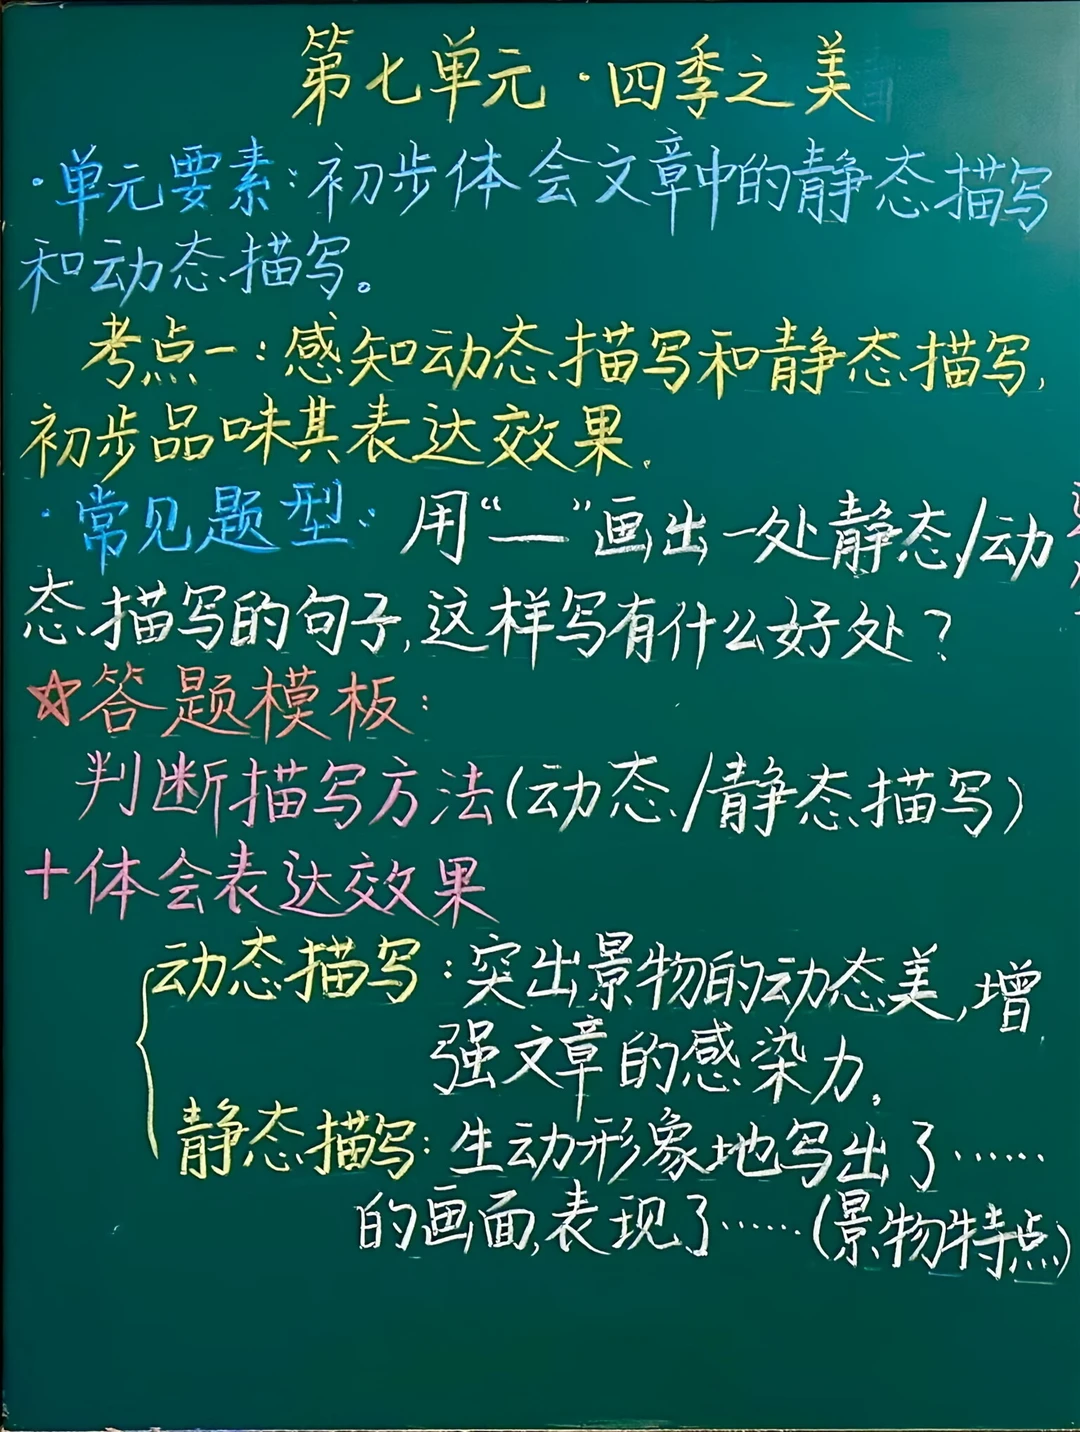 第七单元·四季之美
·单元要素:初步体会文章中的静态描写
和动态描写。
考点一:感知动态描写和静态描写,
初步品味其表达效果.
·常见题型:用“—”画出一处静态/动
态描写的句子,这样写有什么好处?
☆答题模板:
判断描写方法(动态/静态描写)
+体会表达效果
动态描写:突出景物的动态美,增
强文章的感染力。
静态描写:生动形象地写出了……
的画面,表现了……(景物特点)